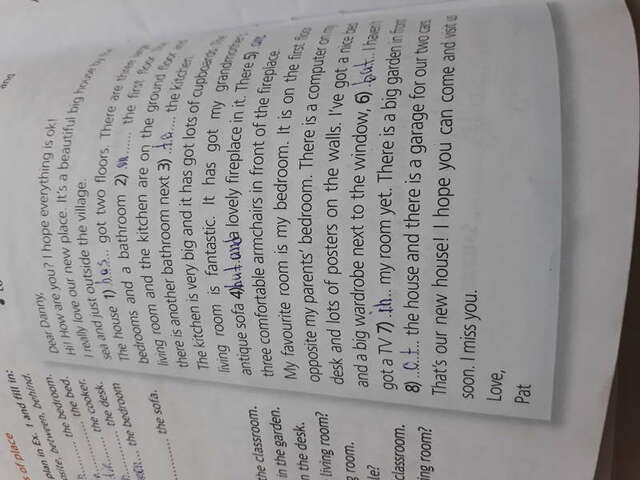 s of place
plan in Ex. 1 and fill in:
osite, between, behind.
the bedroom.
the bed.
the cooker.
the desk.
the bedroom
the sofa.
the classroom.
in the garden.
n the desk.
living room?
g room.
le?
classroom.
ing room?
and
Dear Danny,
Hi! How are you? I hope everything is ok!
I really love our new place. It's a beautiful big house by the
sea and just outside the village.
The house 1) has... got two floors. There are three
bedrooms and a bathroom 2) on...... the first floor. The
living room and the kitchen are on the ground floor and
there is another bathroom next 3) ..to.... the kitchen.
The kitchen is very big and it has got lots of cupboards. The
living room is fantastic. It has got my grandmother's
antique sofa 4) but and a lovely fireplace in it. There 5) are
three comfortable armchairs in front of the fireplace.
My favourite room is my bedroom. It is on the first floor
opposite my parents' bedroom. There is a computer on my
desk and lots of posters on the walls. I've got a nice bed
and a big wardrobe next to the window, 6) .but.. I haven't
got a TV 7) .in.. my room yet. There is a big garden in front
8) ..of.. the house and there is a garage for our two cars.
That's our new house! I hope you can come and visit us
soon. I miss you.
Love,
Pat